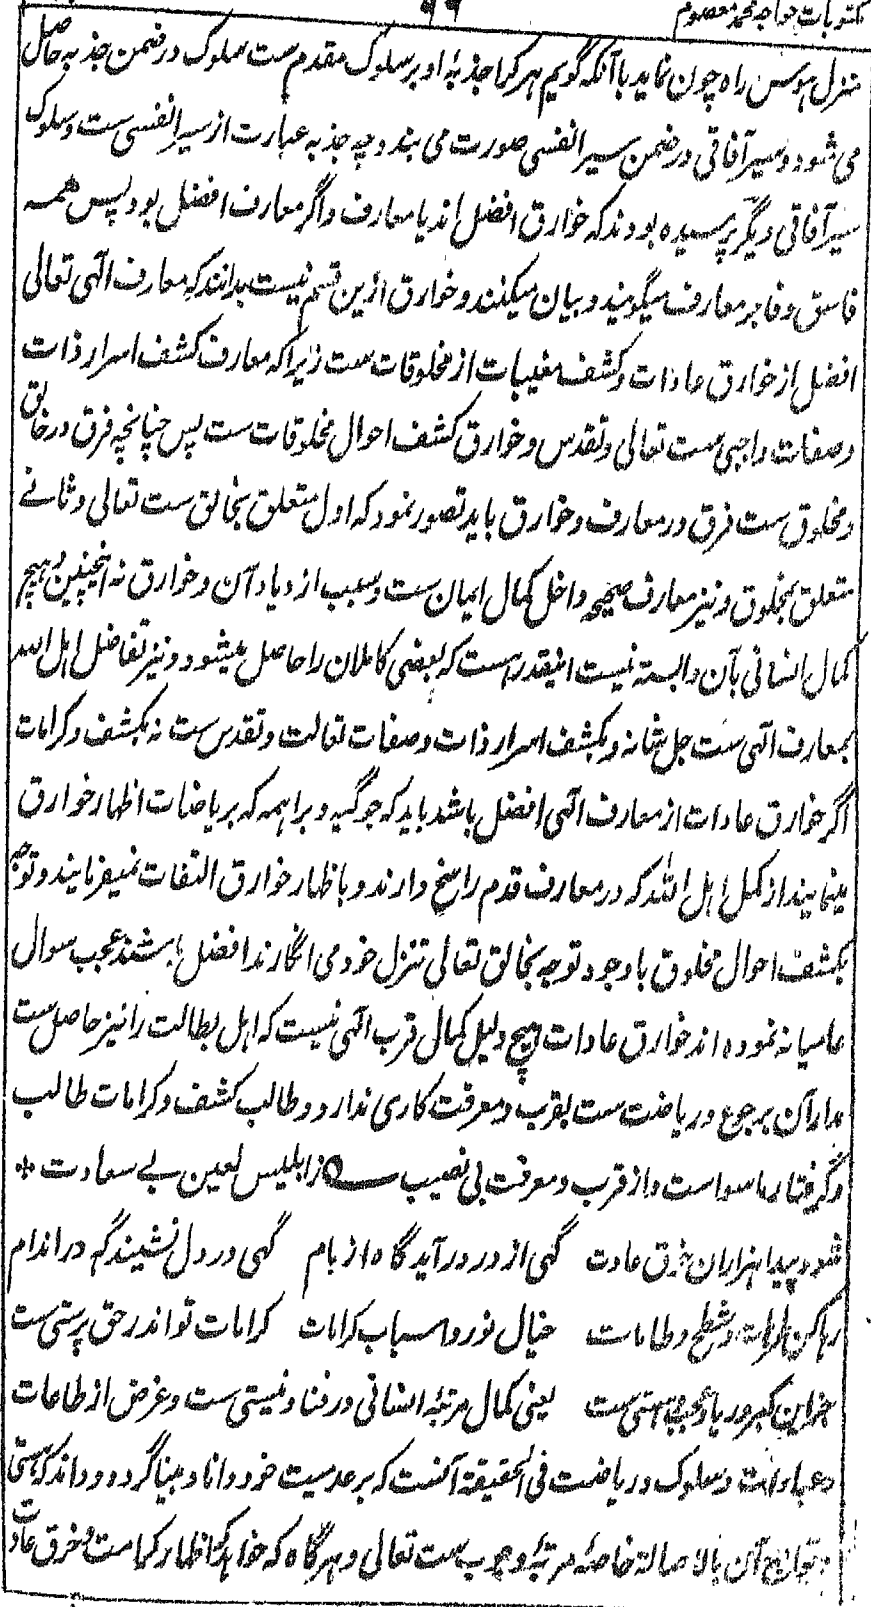 مکتوبات خواجه محمد معصوم
۹۹
منزل هوس راه چون نماید با آنکه گویم هر کرا جذبهٔ او بر سلوک مقدم ست سلوک در ضمن جذبه حاصل
می شود و سیر آفاقی در ضمن سیر انفسی صورت می بندد چه جذبه عبارت از سیر انفسی ست و سلوک
سیر آفاقی دیگر پرسیده بودند که خوارق افضل اند یا معارف و اگر معارف افضل بود پس همه
فاسق و فاجر معارف میگویند و بیان میکنند و خوارق ازین قسم نیست بدانند که معارف الهی تعالی
افضل از خوارق عادات و کشف مغیبات از مخلوقات ست زیرا که معارف کشف اسرار ذات
و صفات واجبی ست تعالی و تقدس و خوارق کشف احوال مخلوقات ست پس چنانچه فرق در خالق
و مخلوق ست فرق در معارف و خوارق باید تصور نمود که اول متعلق بخالق ست تعالی و ثانے
متعلق بمخلوق و نیز معارف صحیحه داخل کمال ایمان ست و سبب ازدیاد آن و خوارق نه اینچنین و هیچ
کمال انسانی بآن وابسته نیست اینقدر هست که بعضی کاملان را حاصل میشود و نیز تفاضل اهل الله
بمعارف الهی ست جل شانه و بکشف اسرار ذات و صفات تعالت و تقدس ست نه بکشف و کرامات
اگر خوارق عادات از معارف الهی افضل باشد باید که جوگیه و براهمه که بریاضات اظهار خوارق
مینمایند از کمل اهل الله که در معارف قدم راسخ دارند و باظهار خوارق التفات نمیفرمایند و توجه
بکشف احوال مخلوق با وجود توجه بخالق تعالی تنزل خود می انگارند افضل باشند عجب سوال
عامیانه نموده اند خوارق عادات هیچ دلیل کمال قرب الهی نیست که اهل بطالت را نیز حاصل ست
مدار آن بر جوع و ریاضت ست بقرب و معرفت کاری ندارد و طالب کشف و کرامات طالب
و گرفتار ماسواست و از قرب و معرفت بی نصیب ؎ ز ابلیس لعین بے سعادت *
شود پیدا هزاران خرق عادت گهی از در درآید گاه از بام گهی در دل نشیند گه در اندام
رها کن ترهات و شطح و طامات خیال نور و اسباب کرامات کرامات تو اندر حق پرستی ست
جز این کبر و ریا و عجب و هستی ست یعنی کمال مرتبهٔ انسانی در فنا و نیستی ست و غرض از طاعات
و عبادات و سلوک و ریاضت فی الحقیقة آنست که بر عدمیت خود دانا و بینا گردد و داند که هستی
و توابع آن بالاصالة خاصهٔ مرتبهٔ وجوب ست تعالی و هرگاه که خواهد که اظهار کرامت و خرق عادت